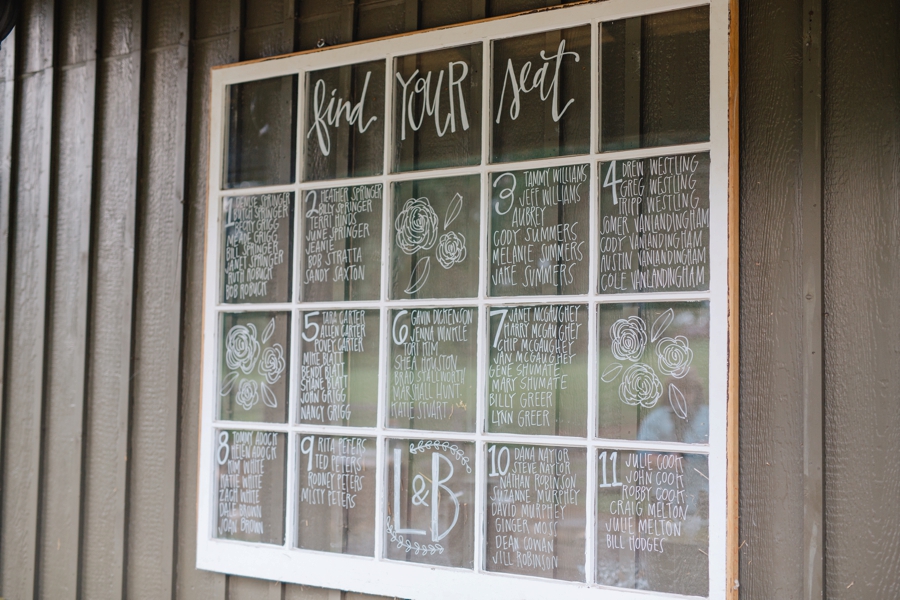 find YOUR seat
1
SPRINGER
BUTCH SPRINGER
SCOTTY GRIGG
GRIGG
SPRINGER
RUTH ROBUCK
BOB ROBUCK
2 HEATHER SPRINGER
BILLY SPRINGER
TERRI HINDS
JANE SPRINGER
JEANIE
BOB STRATTA
SANDY SAXTON
3 TAMMY WILLIAMS
JEFF WILLIAMS
AUBREY
CODY SUMMERS
MELANIE SUMMERS
JAKE SUMMERS
4 DREW WESTLING
GREG WESTLING
TRIPP WESTLING
GOMER VANLANDINGHAM
CODY VANLANDINGHAM
AUSTIN VANLANDINGHAM
COLE VANLANDINGHAM
5 TARA CARTER
ALLEN CARTER
COVEY CARTER
MIKE BLATT
BENDY BLATT
SHANE BLATT
JOHN GRIGG
NANCY GRIGG
6 GAVIN DICKENSON
JENNA WINKLE
TORI KIM
SHEA HOUSTON
BRAD STALLWORTH
MARSHALL HUNT
KATIE STUART
7 JANET MCGAUGHEY
HARRY MCGAUGHEY
CHIP MCGAUGHEY
JAN MCGAUGHEY
GENE SHUMATE
MARY SHUMATE
BILLY GREER
LYNN GREER
8 TOMMY ADOCK
HELEN ADOCK
TIM WHITE
KATIE WHITE
KYLE WHITE
ZACH WHITE
DALE BROWN
JOAN BROWN
9 RITA PETERS
TED PETERS
RODNEY PETERS
MISTY PETERS
L&B
10 DANA NAYLOR
STEVE NAYLOR
NATHAN ROBINSON
SUZANNE MURPHEY
DAVID MURPHEY
GINGER MOSS
DEAN COWAN
JILL ROBINSON
11 JULIE COOK
JOHN COOK
ROBBY COOK
CRAIG MELTON
JULIE MELTON
BILL HODGES